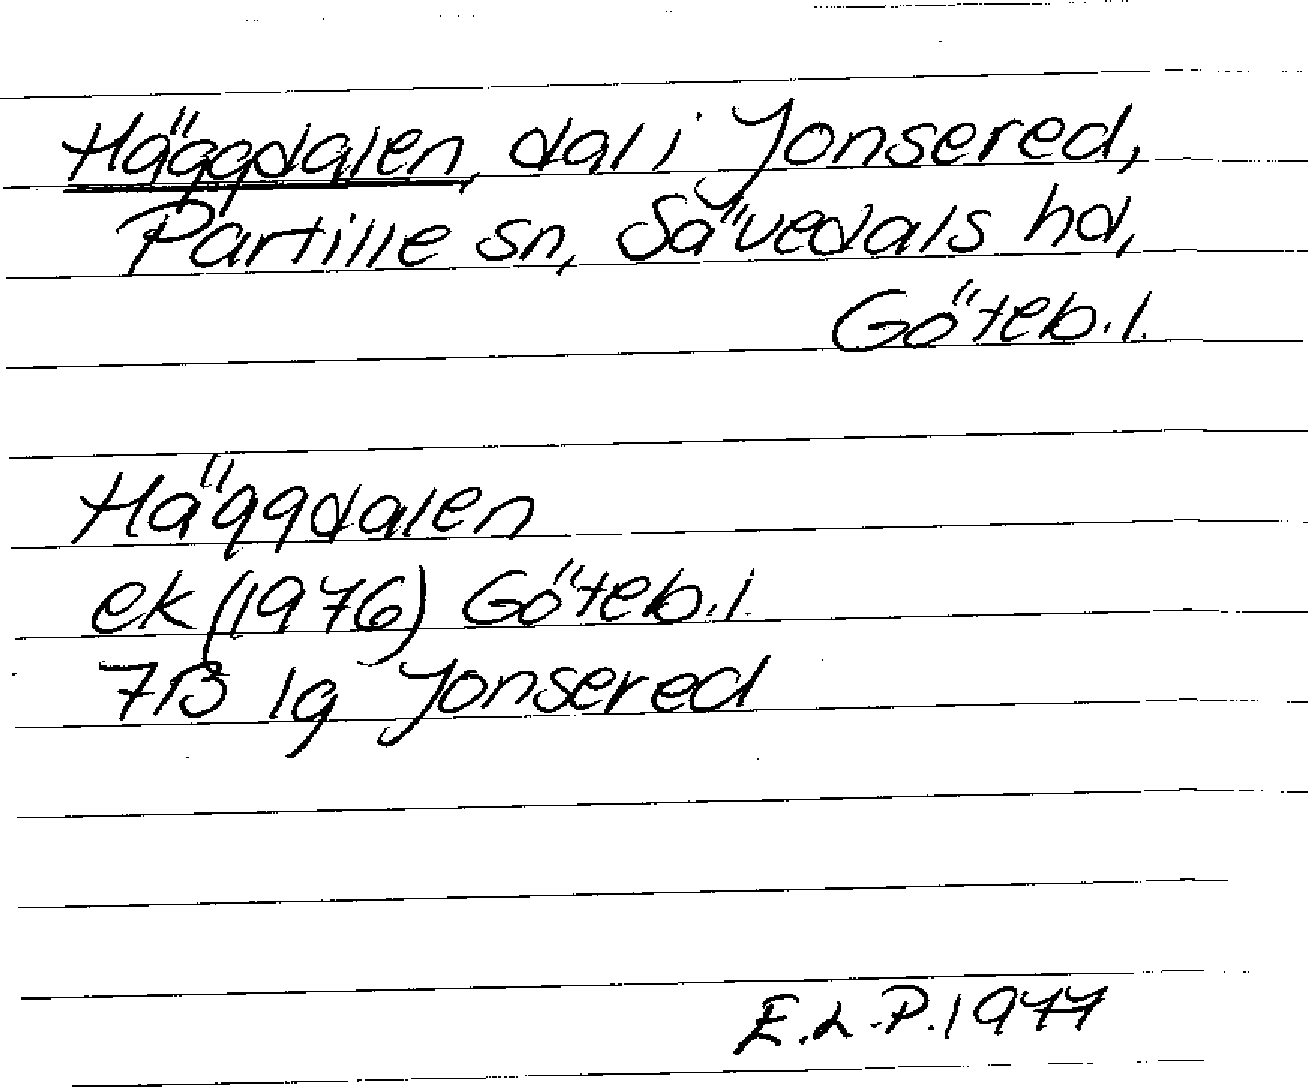 Häggdalen, dal i Jonsered,
Partille sn, Sävedals hd,
Göteb. l.
Häggdalen
ek (1976) Göteb. l.
7B 1g Jonsered
E.L.P. 1977